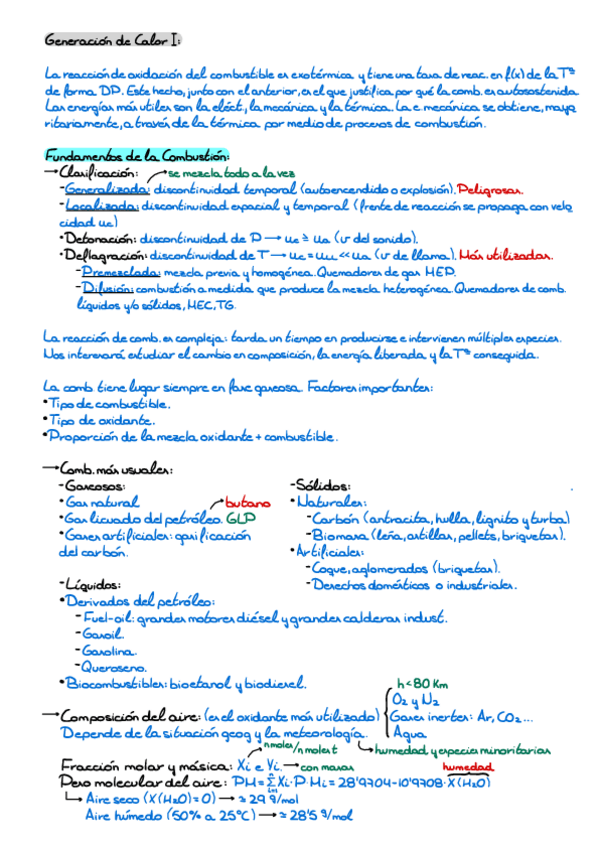 Generación de Calor I:
La reacción de oxidación del combustible es exotérmica y tiene una tasa de reac. en f(x) de la Tª
de forma DP. Este hecho, junto con el anterior, es el que justifica por qué la comb. es autosostenida
Las energías más utiles son la eléct, la mecánica y la térmica. La e. mecánica se obtiene, mayo
ritariamente, a través de la térmica por medio de procesos de combustión.
Fundamentos de la Combustión:
→ Clasificación: se mezcla todo a la vez
- Generalizada: discontinuidad temporal (autoencendido o explosión). Peligrosas.
- Localizada: discontinuidad espacial y temporal (frente de reacción se propaga con velo
cidad uc)
• Detonación: discontinuidad de P → uc ≥ ua (v del sonido).
• Deflagración: discontinuidad de T → uc = uu << ua (v de llama). Más utilizadas.
- Premezclada: mezcla previa y homogénea. Quemadores de gas MEP.
- Difusión: combustión a medida que produce la mezcla heterogénea. Quemadores de comb.
líquidos y/o sólidos, MEC, TG.
La reacción de comb. es compleja: tarda un tiempo en producirse e intervienen múltiples especies.
Nos interesará estudiar el cambio en composición, la energía liberada y la Tª conseguida.
La comb tiene lugar siempre en fase gaseosa. Factores importantes:
• Tipo de combustible.
• Tipo de oxidante.
• Proporción de la mezcla oxidante + combustible.
→ Comb. más usuales:
- Gaseosos:
• Gas natural
butano
• Gas licuado del petróleo. GLP
• Gases artificiales: gasificación
del carbón.
- Líquidos:
• Derivados del petróleo:
- Fuel-oil: grandes motores diésel y grandes calderas indust.
- Gasoil.
- Gasolina.
- Queroseno.
• Biocombustibles: bioetanol y biodiesel.
- Sólidos:
• Naturales:
- Carbón (antracita, hulla, lignito y turba)
- Biomasa (leña, astillas, pellets, briquetas).
• Artificiales:
- Coque, aglomerados (briquetas).
- Desechos domésticos o industriales.
h<80 Km
→ Composición del aire: (es el oxidante más utilizado)
O2 y N2
Gases inertes: Ar, CO2...
Agua
Depende de la situación geog y la meteorología.
nmoles/nmoles t
humedad y especies minoritarias
Fracción molar y másica: Xi e Yi. → con masas
humedad
Peso molecular del aire: PM = Σ Xi · P Mi = 28'9704-10'9708 · X(H2O)
i=1
n
↳ Aire seco (X(H2O)=0) → ≃ 29 g/mol
Aire húmedo (50% a 25°C) → ≃ 28'5 g/mol